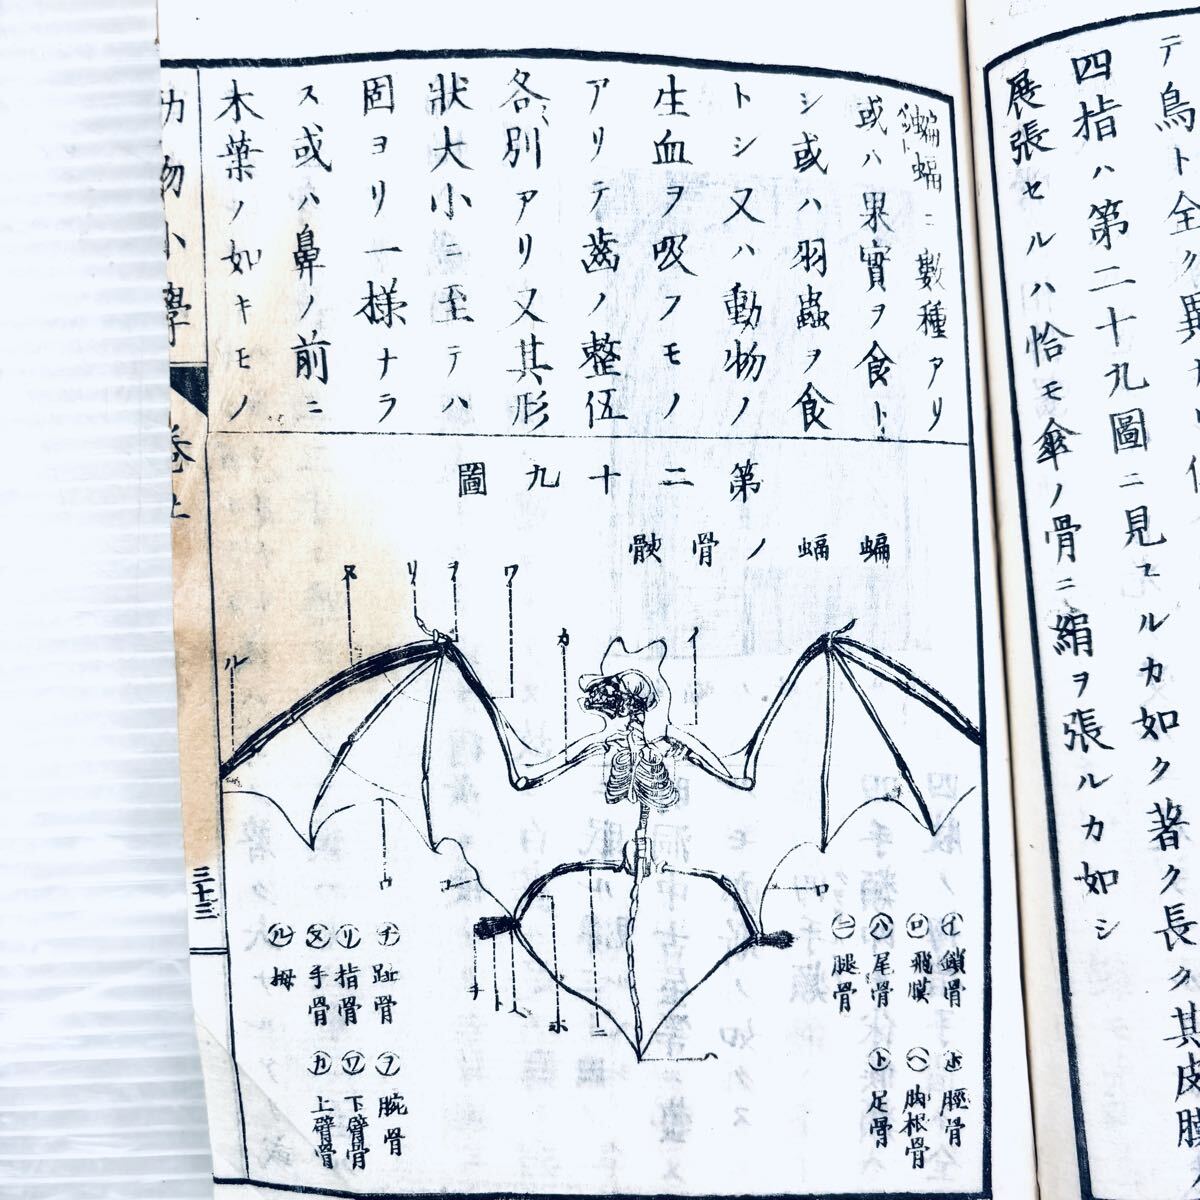 テ鳥ト全ク異ナリ
四指ハ第二十九圖ニ見ユルカ如ク著ク長ク其皮膜
展張セルハ恰モ傘ノ骨ニ絹ヲ張ルカ如シ
蝙蝠ニ數種アリ
或ハ果實ヲ食ト
シ或ハ羽蟲ヲ食
トシ又ハ動物ノ
生血ヲ吸フモノ
アリテ齒ノ整伍
各別アリ又其形
狀大小ニ至テハ
固ヨリ一樣ナラ
ス或ハ鼻ノ前ニ
木葉ノ如キモノ
第二十九圖
蝙蝠ノ骨骸
イ
カ
ワ
ヲ
リ
ヌ
ル
ウ
ロ
ロ
チ
ト
ホ
ニ
ハ
㋑鎖骨
㋺飛膜
㋩尾骨
㊁腿骨
㋭脛骨
㋬脚根骨
㋣足骨
㋠趾骨
㋷指骨
㋦手骨
㋸拇
㋾腕骨
㋻下臂骨
㋕上臂骨
動物小學
卷上
三十三